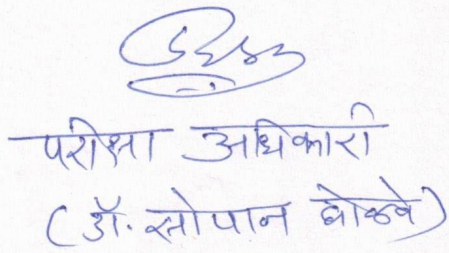 परीक्षा अधिकारी
(डॉ. सोपान घोळवे)